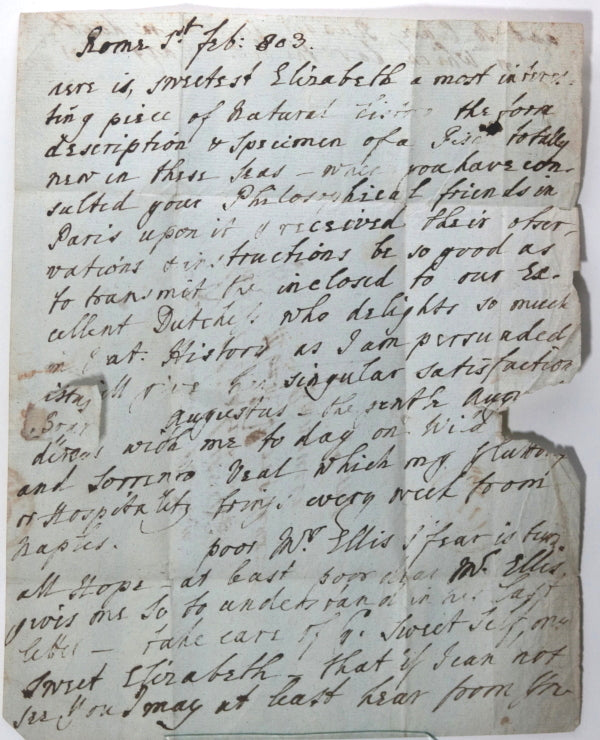 Rome 1st Feb: 803.
Here is, sweetest Elizabeth a most interes-
ting piece of Natural History the form
description & specimen of a totally
new in these seas – when you have con-
sulted your Philosophical friends in
Paris upon it & received their obser-
vations & instructions be so good as
to transmit the inclosed to our Ex-
cellent Dutchess who delights so much
in Nat. History as I am persuaded
it will give her singular satisfaction
Augustus – the
dines with me to day on Wild
and Sorrento Veal which my
or Hospitality brings every week from
Naples. poor Mrs Ellis I fear is
all Hope – at least poor dear Mr. Ellis
gives me so to understand in his last
letter – take care of yr. sweet self, my
sweet Elizabeth – that if I can not
see you I may at least hear from you